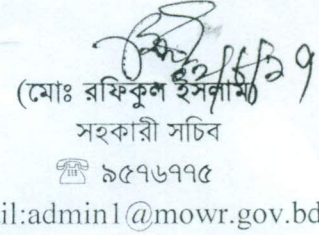 (মোঃ রফিকুল ইসলাম)
সহকারী সচিব
☎ ৯৫৭৬৭৭৫
il:admin1@mowr.gov.bd